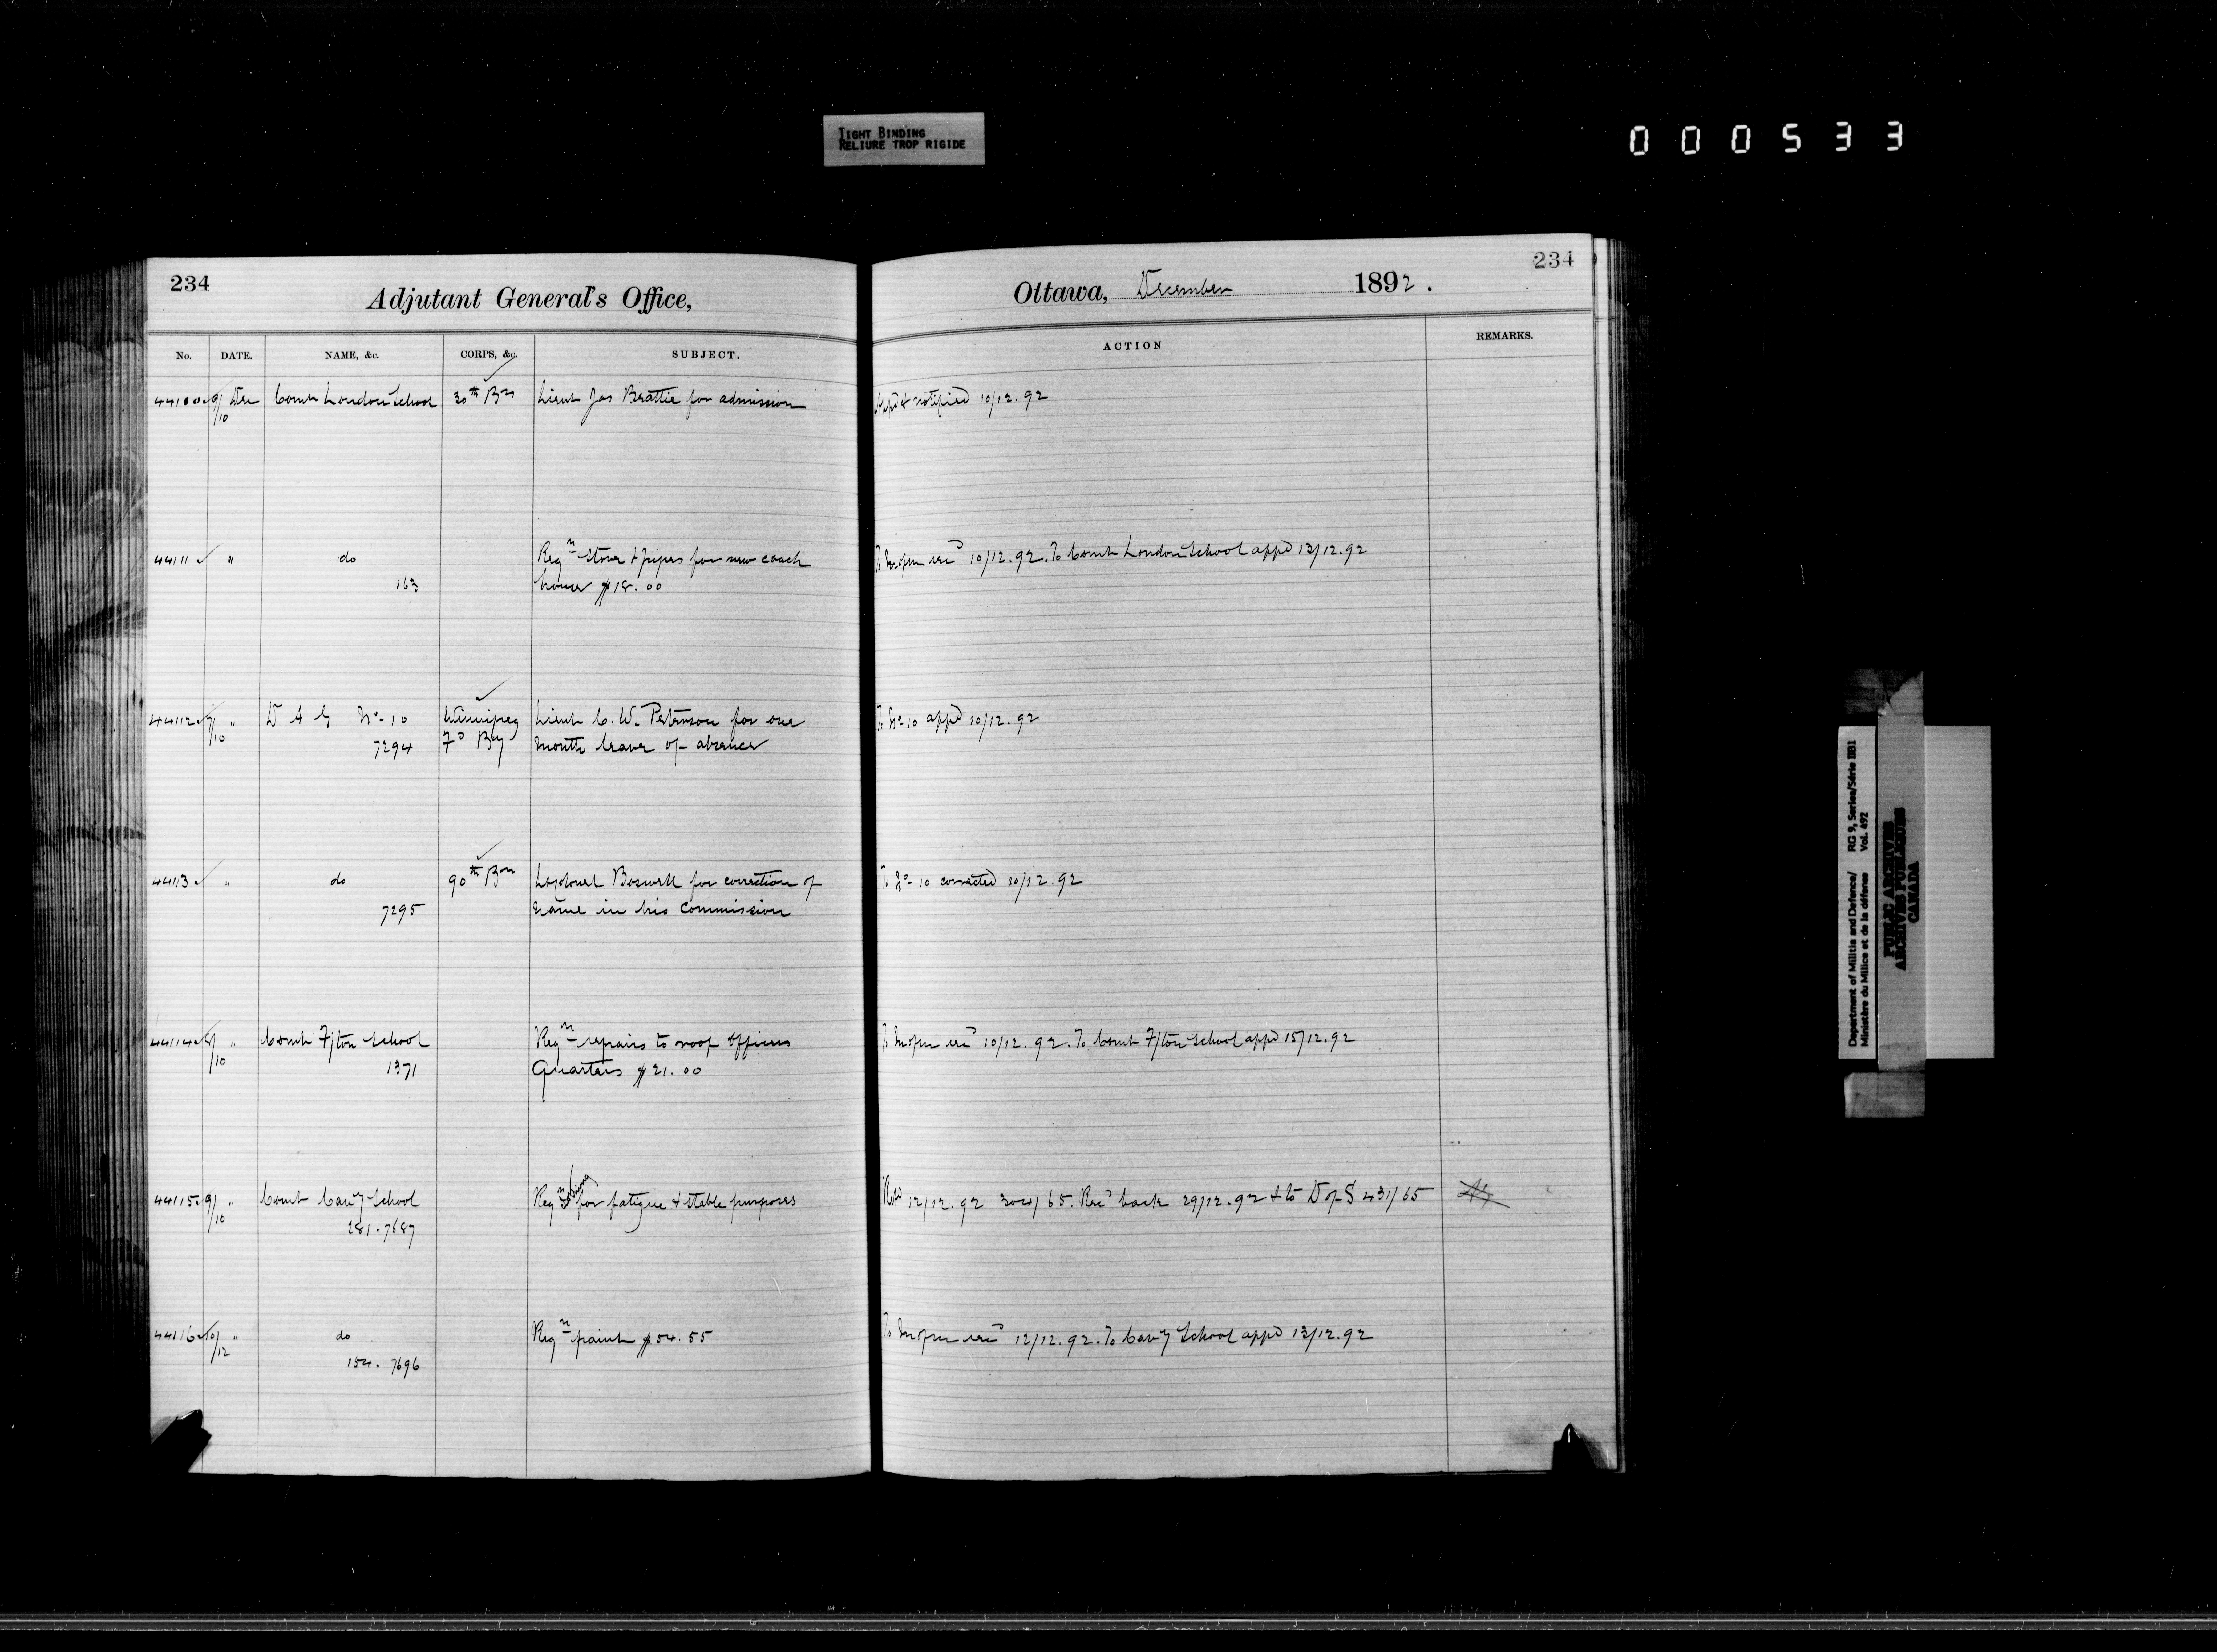 TIGHT BINDING
RELIURE TROP RIGIDE
000533
234
Adjutant General's Office,
No. DATE. NAME, &c. CORPS, &c. SUBJECT.
44110 9/10 Dec Comt London School 30th Bn Lieut Jas Beattie for admission
44111 " do Reqn stove & pipes for new coach
163 house $18.00
44112 9/10 " D A G No 10 Winnipeg Lieut C. W. Peterson for one
7294 Fd By month leave of absence
44113 " do 90th Bn Lt Colonel Boswell for correction of
7295 name in his commission
44114 9/10 " Comt F/ton School Reqn repairs to roof Officers
1371 Quarters $21.00
44115 9/10 " Comt Cavy School Reqn for fatigue & stable purposes
281.7687
44116 10/12 " do Reqn paint $54.55
154. 7696
234
Ottawa, December 1892.
ACTION REMARKS.
Appd & notified 10/12.92
To 10/12.92. To Comt London School appd 13/12.92
To No 10 appd 10/12.92
To No 10 corrected 10/12.92
To 10/12.92. To Comt F/ton School appd 15/12.92
12/12.92 304/65. Recd back 29/12.92 & to D of S 431/65
To 12/12.92. To Cavy School appd 13/12.92
Department of Militia and Defence/ RG 9, Series/Série IIB1
Ministère du Milice et de la défense Vol. 492
PUBLIC ARCHIVES
ARCHIVES PUBLIQUES
CANADA